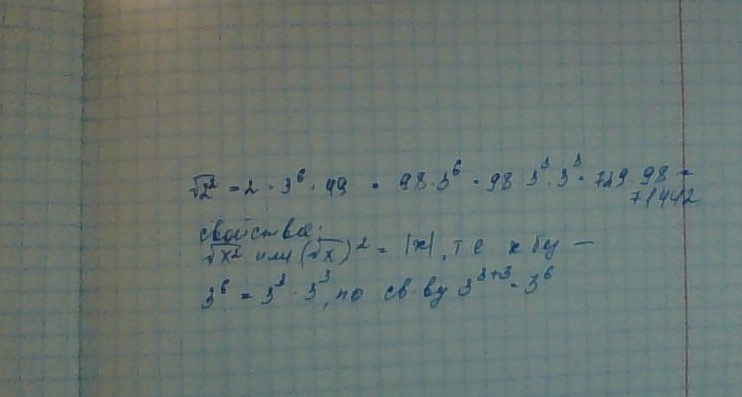 √2² = 2 · 3⁶ · 49 = 98 · 3⁶ = 98 · 3³ · 3³ = 729 · 98 =
71442
свойства:
√x² или (√x)² = |x|, т е
3⁶ = 3³ · 3³, по св-ву 3³⁺³ = 3⁶